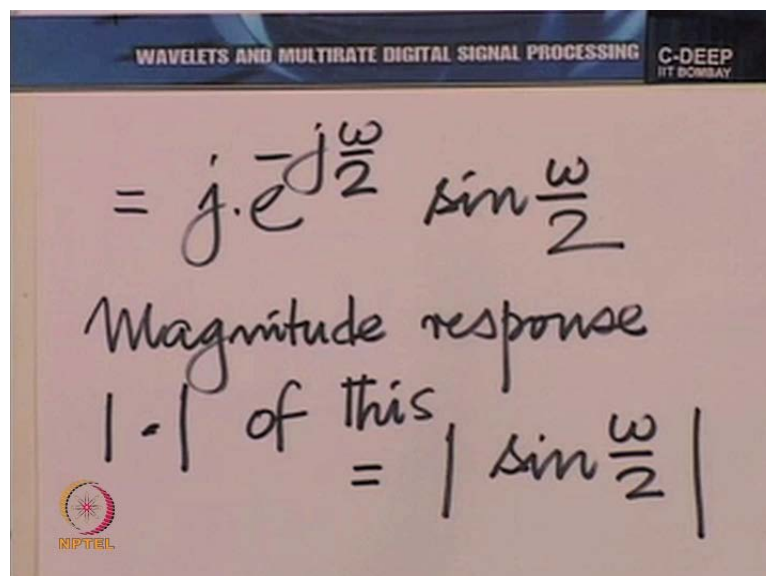 WAVELETS AND MULTIRATE DIGITAL SIGNAL PROCESSING
C-DEEP
IIT BOMBAY
= j.e^{-jω/2} sin ω/2
Magnitude response
|·| of this
= | sin ω/2 |
NPTEL